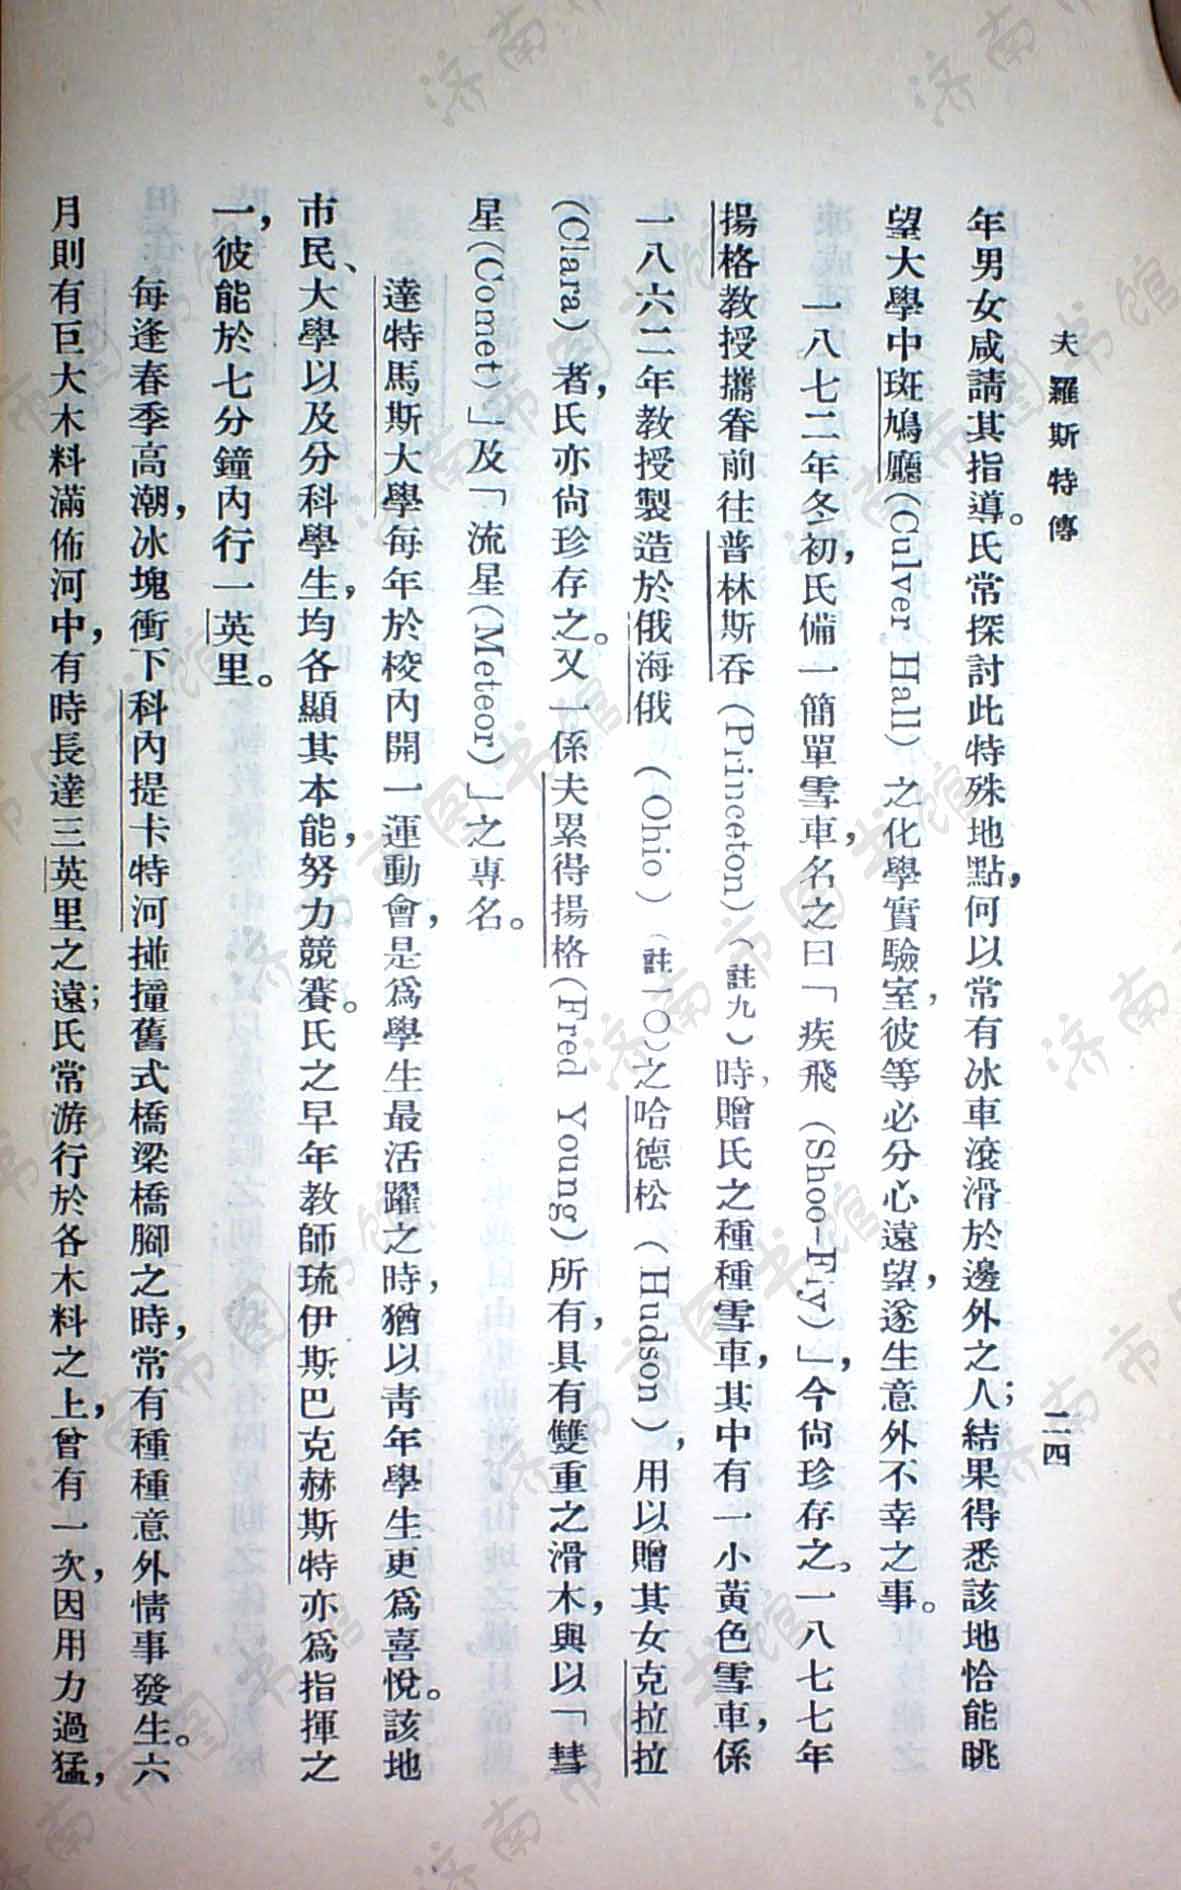 夫羅斯特傳
二四
年男女咸請其指導。氏常探討此特殊地點，何以常有冰車滾滑於邊外之人；結果得悉該地恰能眺
望大學中斑鳩廳(Culver Hall)之化學實驗室，彼等必分心遠望，遂生意外不幸之事。
一八七二年冬初，氏備一簡單雪車，名之曰「疾飛(Shoo-Fly)」，今尚珍存之。一八七七年
揚格教授攜眷前往普林斯吞(Princeton)(註九)時，贈氏之種種雪車，其中有一小黃色雪車，係
一八六二年教授製造於俄海俄(Ohio)(註一〇)之哈德松(Hudson)，用以贈其女克拉拉
(Clara)者，氏亦尚珍存之。又一係夫累得揚格(Fred Young)所有，具有雙重之滑木，與以「彗
星(Comet)」及「流星(Meteor)」之專名。
達特馬斯大學每年於校內開一運動會，是為學生最活躍之時，猶以青年學生更為喜悅。該地
市民、大學以及分科學生，均各顯其本能，努力競賽。氏之早年教師琉伊斯巴克赫斯特亦為指揮之
一，彼能於七分鐘內行一英里。
每逢春季高潮，冰塊衝下科內提卡特河掽撞舊式橋梁橋腳之時，常有種種意外情事發生。六
月則有巨大木料滿佈河中，有時長達三英里之遠；氏常游行於各木料之上，曾有一次，因用力過猛，
济南市图书馆